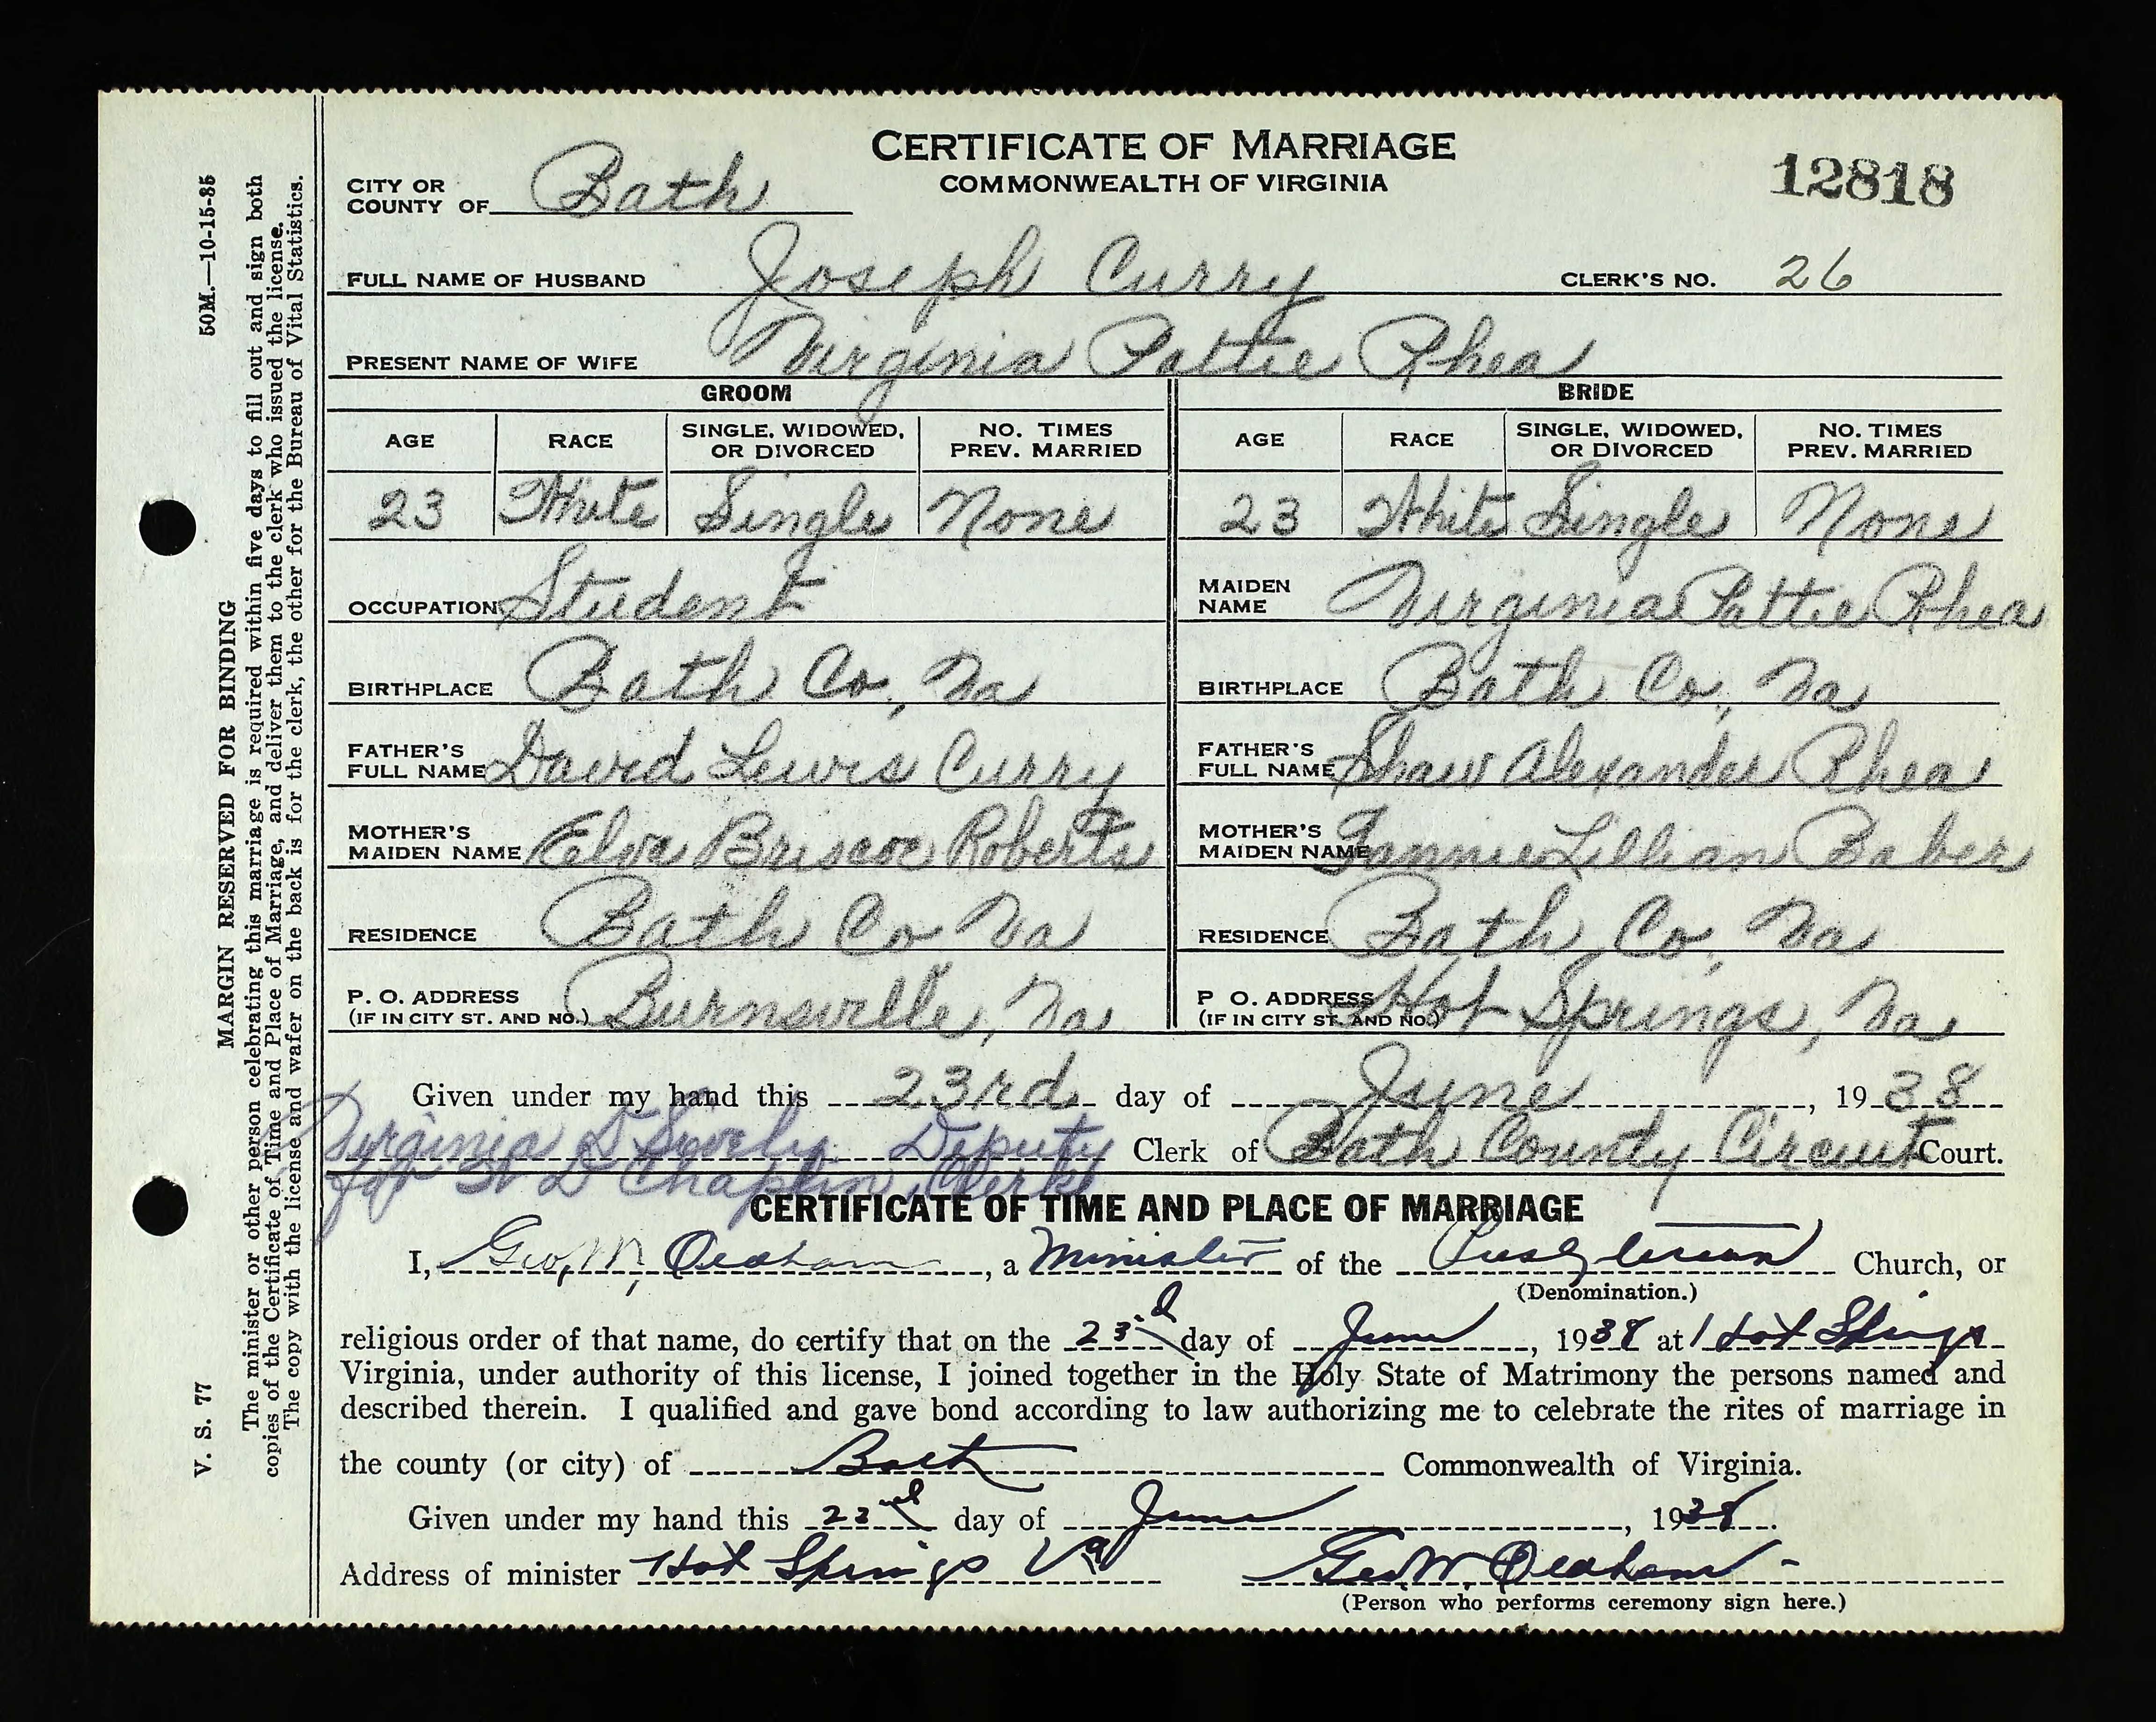 CERTIFICATE OF MARRIAGE
COMMONWEALTH OF VIRGINIA
12818
CITY OR COUNTY OF Bath
FULL NAME OF HUSBAND Joseph Curry CLERK'S NO. 26
PRESENT NAME OF WIFE Virginia Pattie Rhea
GROOM BRIDE
AGE RACE SINGLE, WIDOWED, OR DIVORCED NO. TIMES PREV. MARRIED AGE RACE SINGLE, WIDOWED, OR DIVORCED NO. TIMES PREV. MARRIED
23 White Single None 23 White Single None
OCCUPATION Student MAIDEN NAME Virginia Pattie Rhea
BIRTHPLACE Bath Co., Va BIRTHPLACE Bath Co., Va
FATHER'S FULL NAME David Lewis Curry FATHER'S FULL NAME Shaw Alexander Rhea
MOTHER'S MAIDEN NAME Briscoe Roberts MOTHER'S MAIDEN NAME Fannie Lillian Baber
RESIDENCE Bath Co Va RESIDENCE Bath Co, Va
P. O. ADDRESS (IF IN CITY ST. AND NO.) Burnsville, Va P O. ADDRESS (IF IN CITY ST. AND NO.) Hot Springs, Va
Given under my hand this 23rd day of June, 1938
Virginia D Deputy Clerk of Bath County Circuit Court.
for Chaplin, Clerk
CERTIFICATE OF TIME AND PLACE OF MARRIAGE
I, Geo, , a Minister of the Presbyterian Church, or
(Denomination.)
religious order of that name, do certify that on the 23rd day of June, 1938 at Hot Springs
Virginia, under authority of this license, I joined together in the Holy State of Matrimony the persons named and
described therein. I qualified and gave bond according to law authorizing me to celebrate the rites of marriage in
the county (or city) of Bath Commonwealth of Virginia.
Given under my hand this day of June, 1938.
Address of minister Hot Springs Va Geo.
(Person who performs ceremony sign here.)
50M.—10-15-35
MARGIN RESERVED FOR BINDING
V. S. 77
The minister or other person celebrating this marriage is required within five days to fill out and sign both
copies of the Certificate of Time and Place of Marriage, and deliver them to the clerk who issued the license.
The copy with the license and wafer on the back is for the clerk, the other for the Bureau of Vital Statistics.